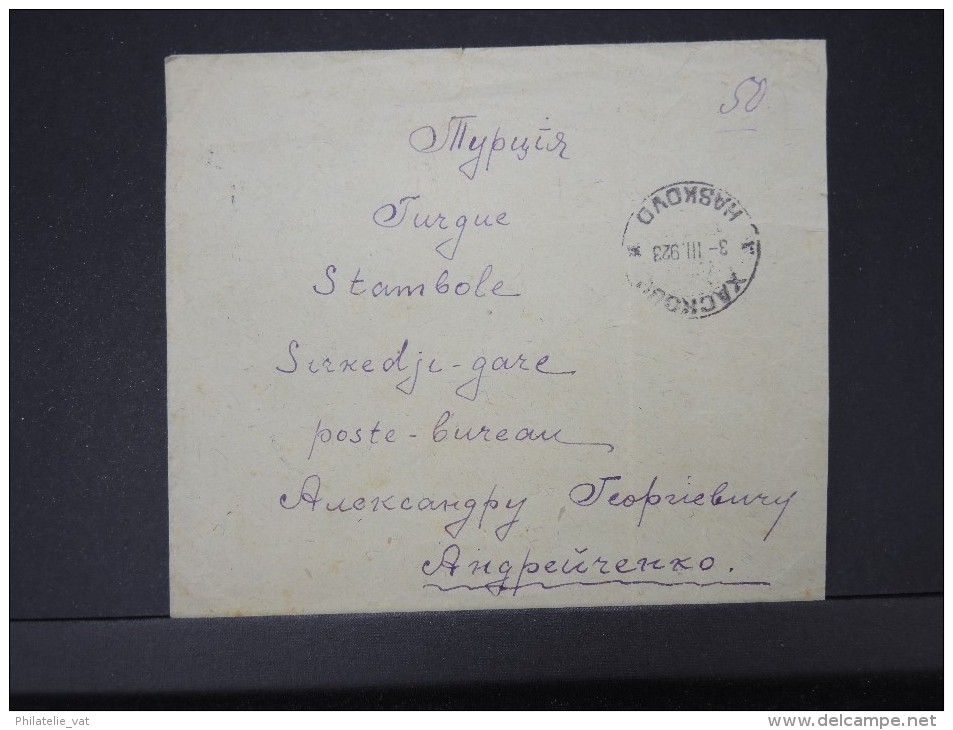 50
Турція
Turgue
Stambole
HASKOVO
3-III.923
ХАСКОВО
Sirkedji-gare
poste-bureau
Александру Георгіевичу
Андрейченко.
Philatelie_vat
www.delcampe.net